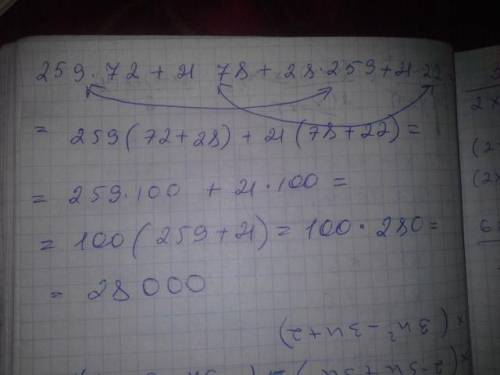 259·72 + 21 78 + 28·259 + 21·22 =
= 259(72+28) + 21(78+22) =
= 259·100 + 21·100 =
= 100(259+21) = 100·280 =
= 28000
×(3u² - 3u + 2)